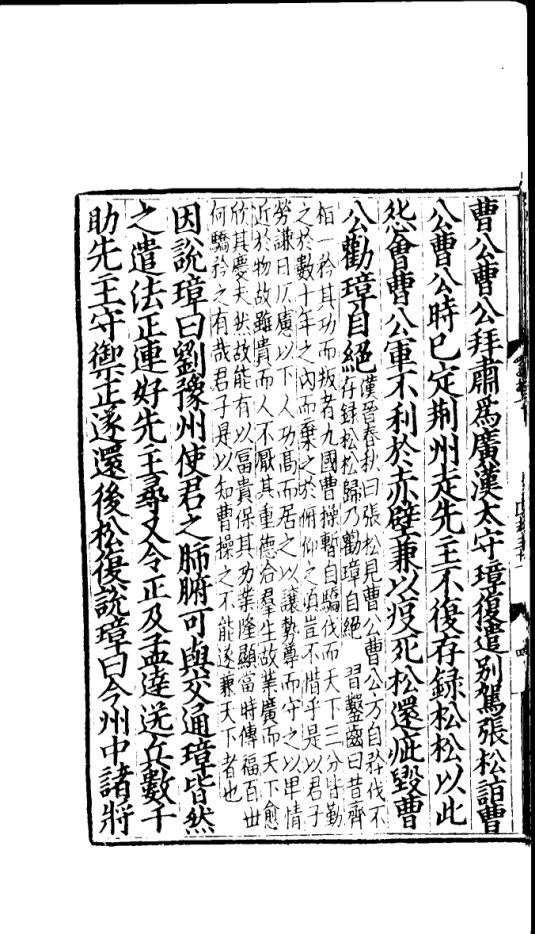 曹公曹公拜肅爲廣漢太守璋復遣别駕張松詣曹
公曹公時已定荆州走先主不復存録松松以此
怨會曹公軍不利於赤壁兼以疫死松還疵毁曹
公勸璋自絶
漢晉春秋曰張松見曹公曹公方自矜伐不
存録松松歸乃勸璋自絶 習鑿齒曰昔齊
桓一矜其功而叛者九國曹操暫自驕伐而天下三分皆勤
之於數十年之内而棄之於俯仰之頃豈不惜乎是以君子
勞謙日仄慮以下人功髙而居之以讓勢尊而守之以卑情
近於物故雖貴而人不厭其重德洽羣生故業廣而天下愈
欣其慶夫然故能有以富貴保其功業隆顯當時傳福百世
何驕矜之有哉君子是以知曹操之不能遂兼天下者也
因說璋曰劉豫州使君之肺腑可與交通璋皆然
之遣法正連好先主尋又令正及孟達送兵數千
助先主守禦正遂還後松復說璋曰今州中諸將